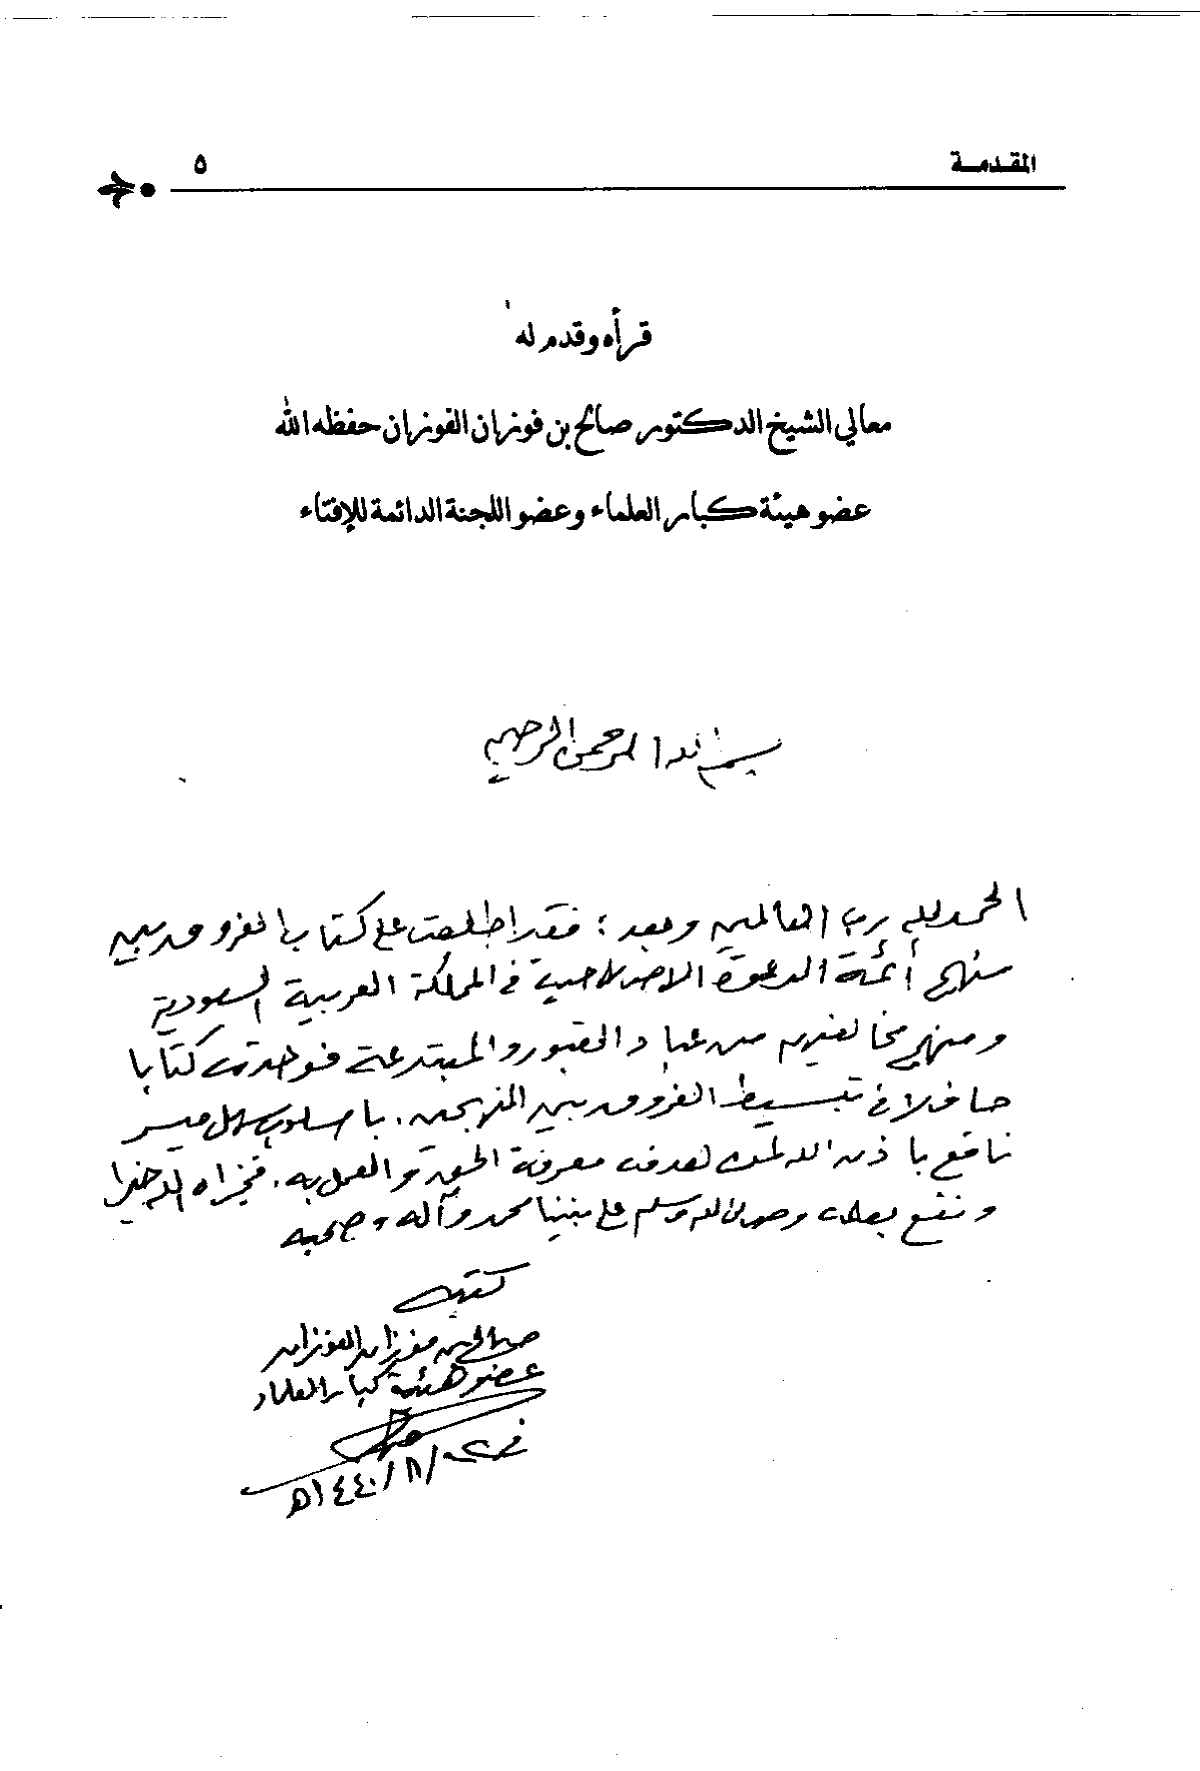 المقدمة
٥
قرأه وقدم له
معالي الشيخ الدكتور صالح بن فوزان الفوزان حفظه الله
عضو هيئة كبار العلماء وعضو اللجنة الدائمة للإفتاء
بسم الله الرحمن الرحيم
الحمد لله رب العالمين وبعد : فقد اطلعت على كتاب الفروق بين
منهج أئمة الدعوة الاصلاحية في المملكة العربية السعودية
ومنهج مخالفيهم من عباد القبور والمبتدعة فوجدته كتابا
حافلا في تبسيط الفروق بين المنهجين. باسلوب سهل ميسر
نافع باذن الله لمن هدفه معرفة الحق والعمل به. فجزاه الله خيرا
ونفع بعلمه وصلى الله وسلم على نبينا محمد وآله وصحبه
كتبه
صالح بن فوزان الفوزان
عضو هيئة كبار العلماء
في /٨/١٤٤٠هـ